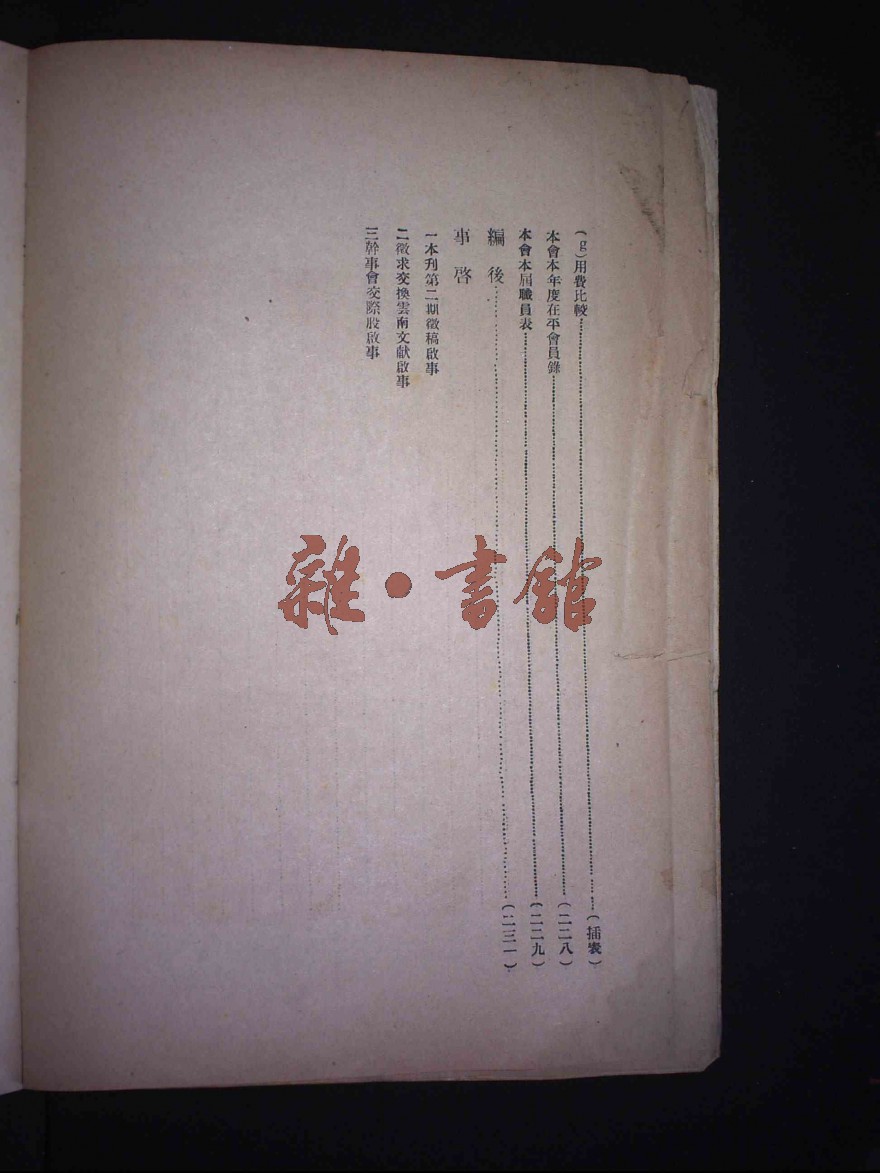 (g)用費比較……(插表)
本會本年度在平會員錄……(二二八)
本會本屆職員表……(二二九)
編後……(二三一)
事啓
一本刊第二期徵稿啟事
二徵求交換雲南文獻啟事
三幹事會交際股啟事
雜·書館